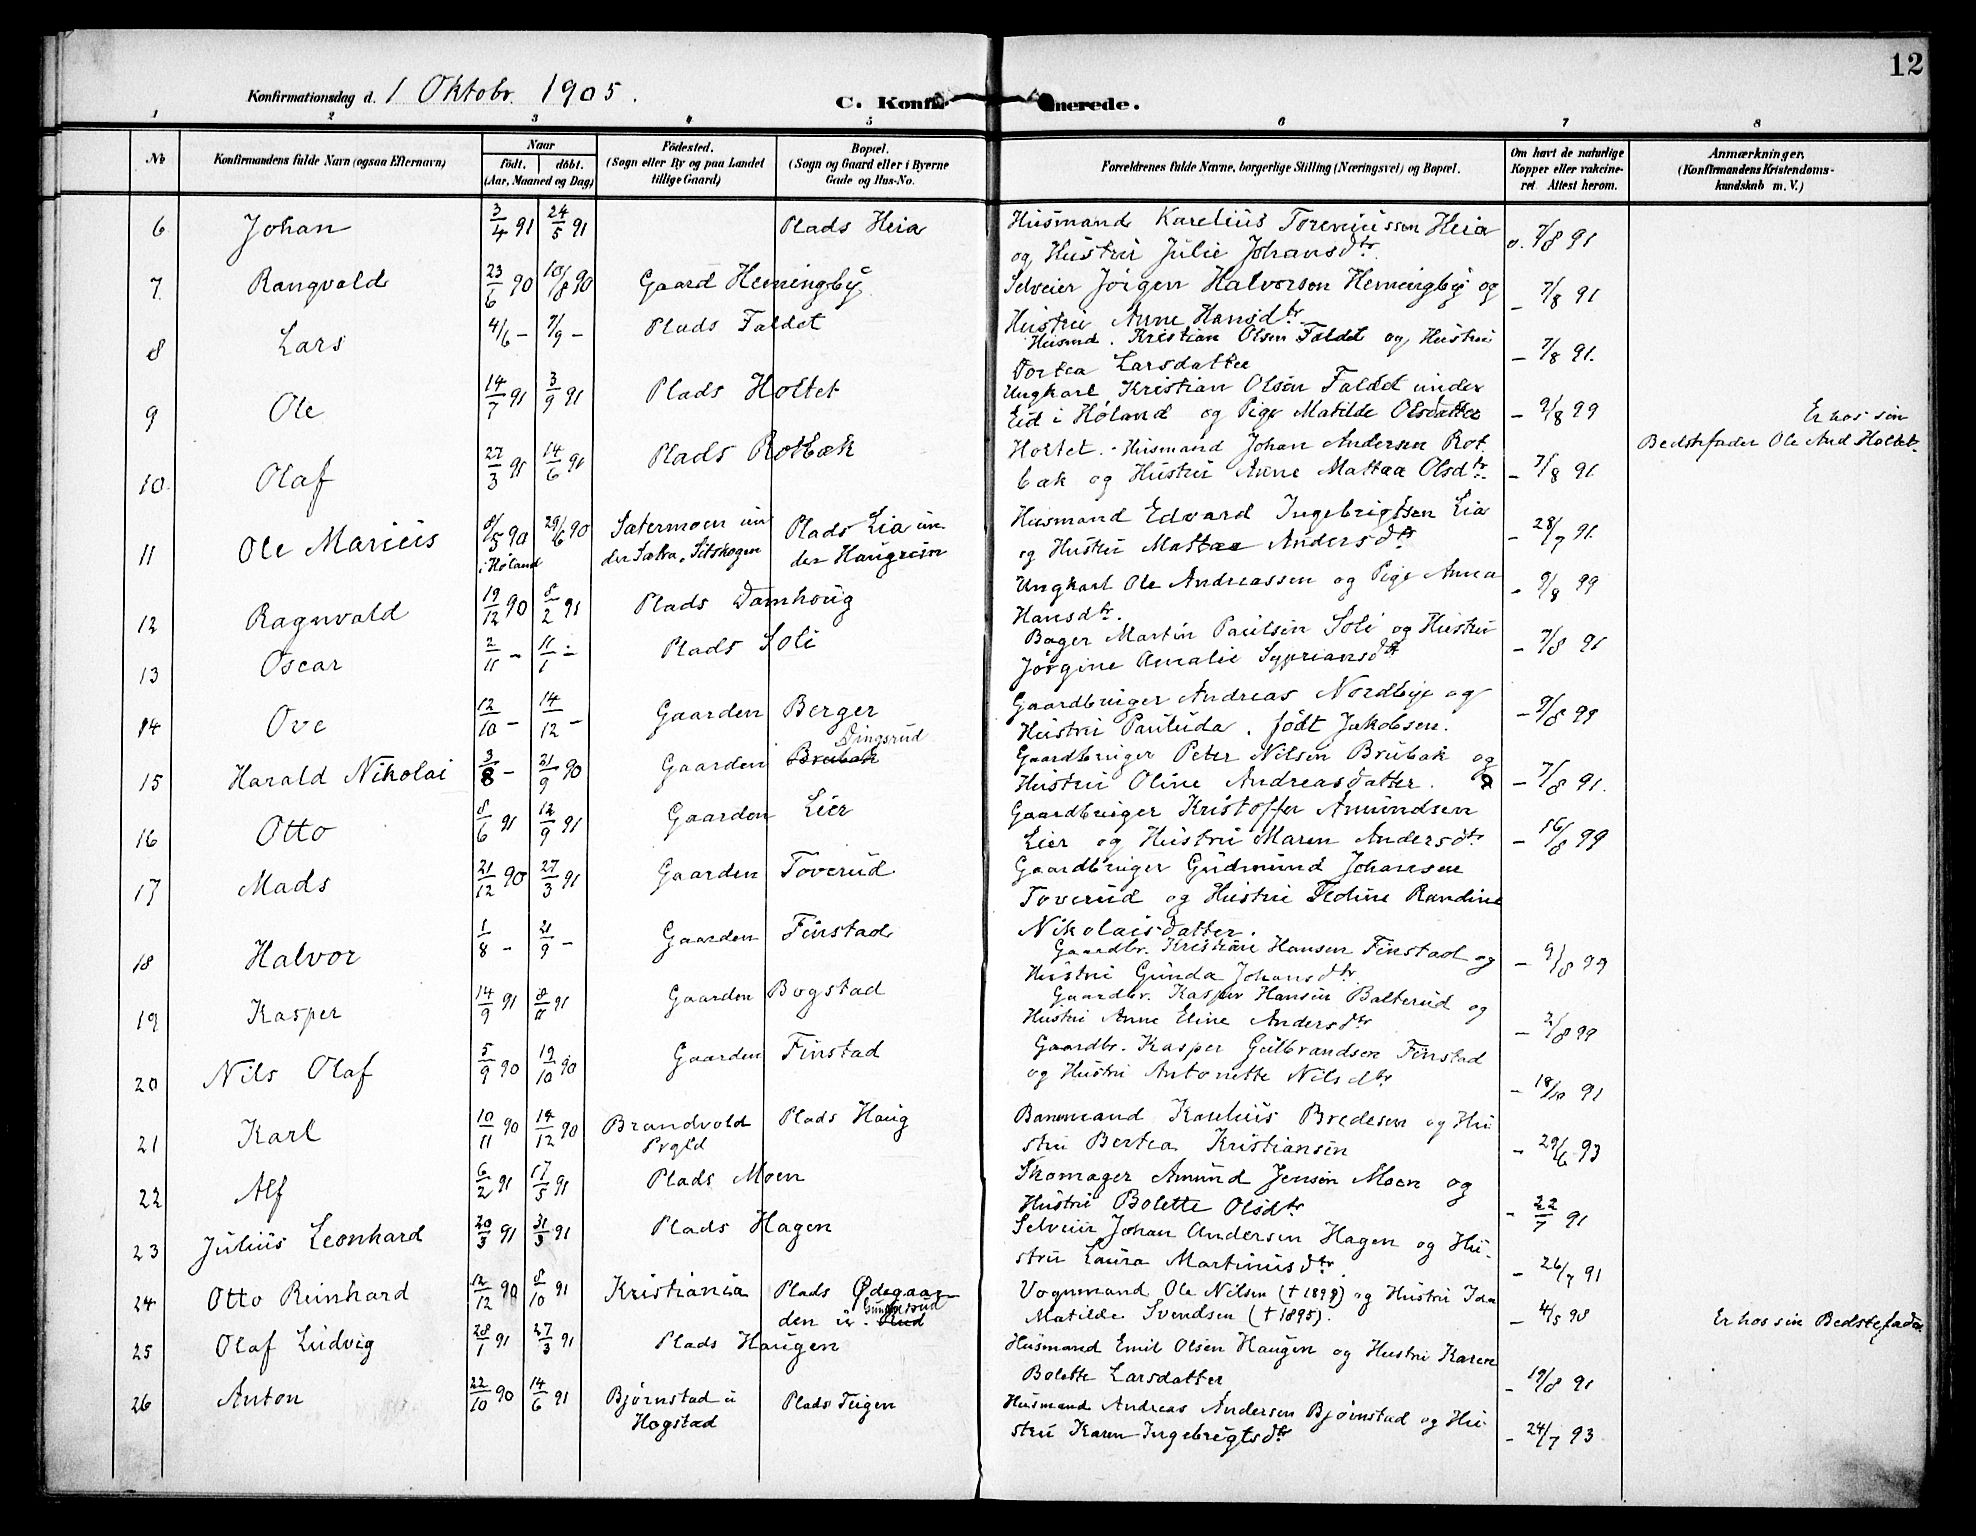 12
Konfirmationsdag d. 1 Oktobr. 1905.
C. Konfir
merede.
1 2 3 4 5 6 7 8
No
Konfirmandens fulde Navn (ogsaa Efternavn)
Naar
födt. döbt.
(Aar, Maaned og Dag)
Födested.
(Sogn eller By og paa Landet
tillige Gaard)
Bopæl.
(Sogn og Gaard eller i Byerne
Gade og Hus-No.
Forældrenes fulde Navne, borgerlige Stilling (Næringsvei) og Bopæl.
Om havt de naturlige
Kopper eller vakcine-
ret. Attest herom.
Anmærkninger.
(Konfirmandens Kristendoms-
kundskab m. V.)
6 Johan 3/4 91 24/5 91 Plads Heia Husmand Karelius Toreniussen Heia
og Hustru Julie Johansdtr. v. 7/8 91
7 Rangvald 23/6 90 10/8 90 Gaard Hemingby Selveier Jörgen Halvorsen Hemingby og
Hustru Anne Hansdtr – 7/8 91
8 Lars 4/6 – 7/9 – Plads Faldet Husmd. Kristian Olsen Faldet og Hustru
Dortea Larsdatter – 7/8 91.
9 Ole 14/7 91 3/9 91 Plads Holtet Ungkarl Kristian Olsen Faldet under
Eid i Høland og Pige Matilde Olsdatter – 9/8 99 Er hos sin
Holtet. Bedstefader Ole And. Holtet.
10 Olaf 27/3 91 14/6 91 Plads Rotbæk Husmand Johan Andersen Rot
bæk og Hustru Anne Mattea Olsdtr. – 7/8 91
11 Ole Marius 8/5 90 29/6 90 Sætermoen un Plads Lia un- Husmand Edvard Ingebrigtsen Lia
i Høland der Sæka, Sitskogen der Haugrein og Hustru Mattea Andersdtr – 28/7 91.
12 Ragnvald 19/12 90 8/2 91 Plads Damhoug Ungkarl Ole Andreassen og Pige Anna
Hansdtr. – 9/8 99
13 Oscar 2/11 – 11/1 – Plads Soli Bager Martin Paulsen Soli og Hustru
Jørgine Amalie Sypriansdtr – 7/8 91
14 Ove 12/10 – 14/12 – Gaarden Berger Gaardbruger Andreas Nordbye og
Hustru Pauluda. født Jakobsen. – 9/8 99
15 Harald Nikolai 3/8 – 21/9 90 Gaarden Dingsrud
Brubak Gaardbruger Peter Nilsen Brubak og
Hustru Oline Andreasdatter. – 7/8 91.
16 Otto 8/6 91 12/9 91 Gaarden Lier Gaardbruger Kristoffer Amundsen
Lier og Hustru Maren Andersdtr – 16/8 99
17 Mads 21/12 90 27/3 91 Gaarden Toverud Gaardbruger Gudmund Johansen
Toverud og Hustru Tedine Randine
Nikolaisdatter.
18 Halvor 1/8 – 21/9 – Gaarden Finstad Gaardbr. Kristian Hansen Finstad og
Hustru Gunda Johansdtr. – 9/8 99
19 Kasper 14/9 91 8/11 91 Gaarden Bogstad Gaardbr. Kasper Hansen Balterud og
Hustru Anne Eline Andersdtr – 2/8 99
20 Nils Olaf 5/9 90 19/10 90 Gaarden Finstad Gaardbr. Kasper Gulbrandsen Finstad
og Hustru Antonette Nilsdtr – 18/10 91
21 Karl 10/11 90 14/12 90 Brandvold Plads Haug Banemand Karelius Bredesen og Hu
Prgld stru Bertea Kristiansen – 29/6 93
22 Alf 6/2 91 17/5 91 Plads Moen Skomager Amund Jensen Moen og
Hustru Bolette Olsdtr – 22/7 91
23 Julius Leonhard 20/3 91 31/3 91 Plads Hagen Selveier Johan Andersen Hagen og Hu-
stru Laura Martinusdtr – 26/7 91
24 Otto Reinhard 12/12 90 8/10 91 Kristiania Plads Ødegaar- Vognmand Ole Nilsen († 1898) og Hustru Ida
den u. Rud Matilde Svendsen († 1895). – 4/5 98 Er hos sin Bedstefader
25 Olaf Ludvig 28/1 91 27/3 91 Plads Haugen Husmand Emil Olsen Haugen og Hustru Karen
Bolette Larsdatter – 19/8 91
26 Anton 22/10 90 14/6 91 Bjørnstad u Plads Teigen Husmand Andreas Andersen Bjørnstad og Hu-
Hogstad stru Karen Ingebrigtsdtr – 24/7 93